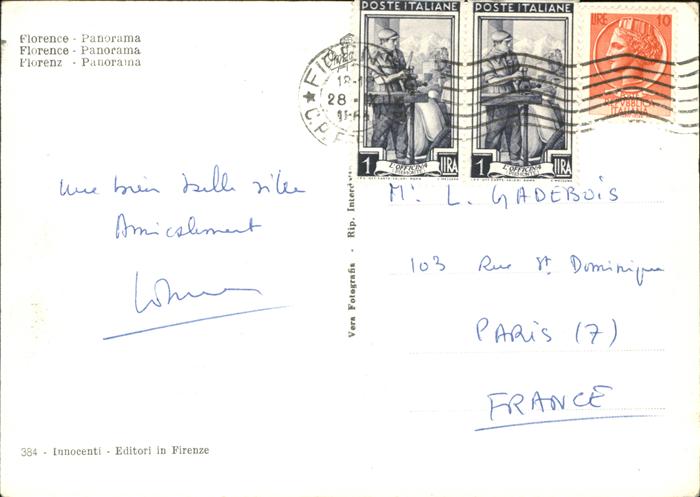 Florence - Panorama
Florence - Panorama
Florenz - Panorama
POSTE ITALIANE
1 LIRA
L'OFFICINA
POSTE ITALIANE
1 LIRA
L'OFFICINA
LIRE 10
POSTE
REPUBBLICA
ITALIANA
28 - IX
Une bien belle ville
Amicalement
Vera Fotografia - Rip.
Mr. L. GADEBOIS
103 Rue St Dominique
PARIS (7)
FRANCE
384 - Innocenti - Editori in Firenze